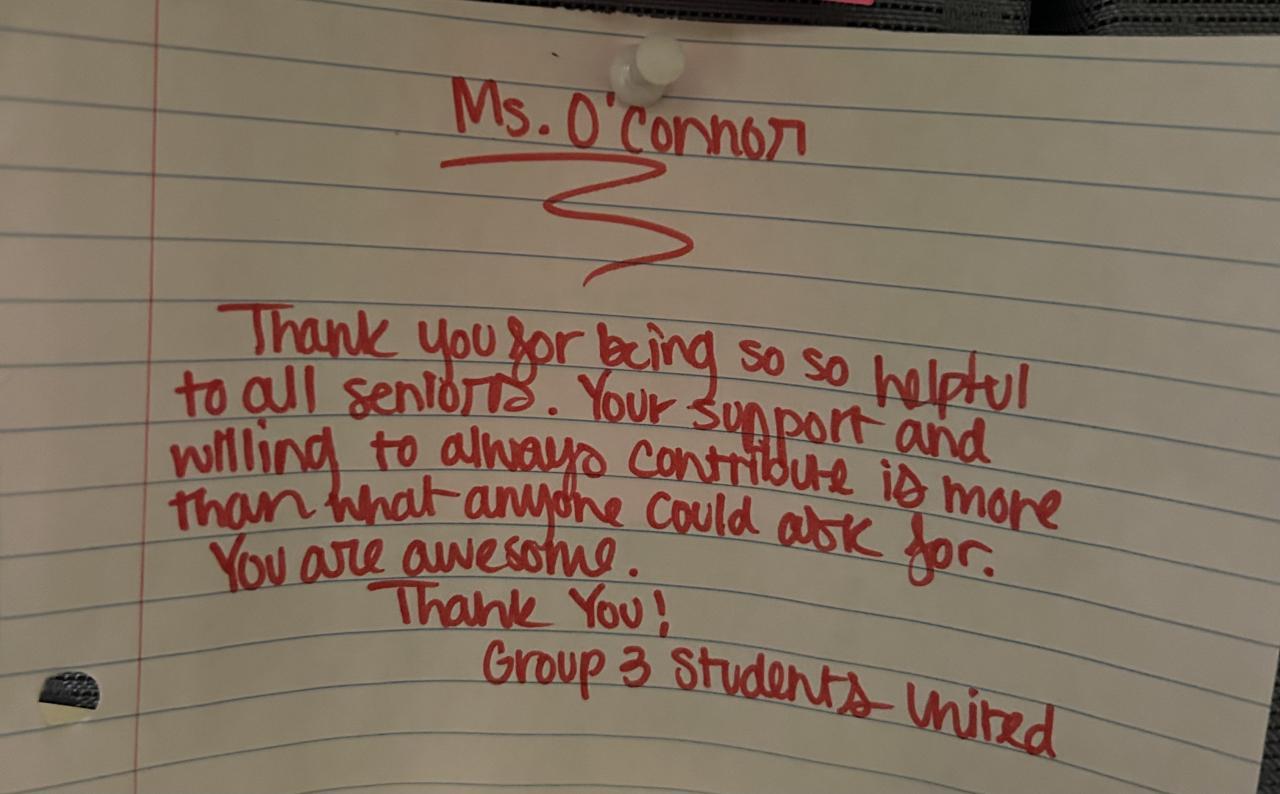 Ms. O'Connor
Thank you for being so so helpful
to all seniors. Your support and
willing to always contribute is more
than what anyone could ask for.
You are awesome.
Thank You!
Group 3 Students United